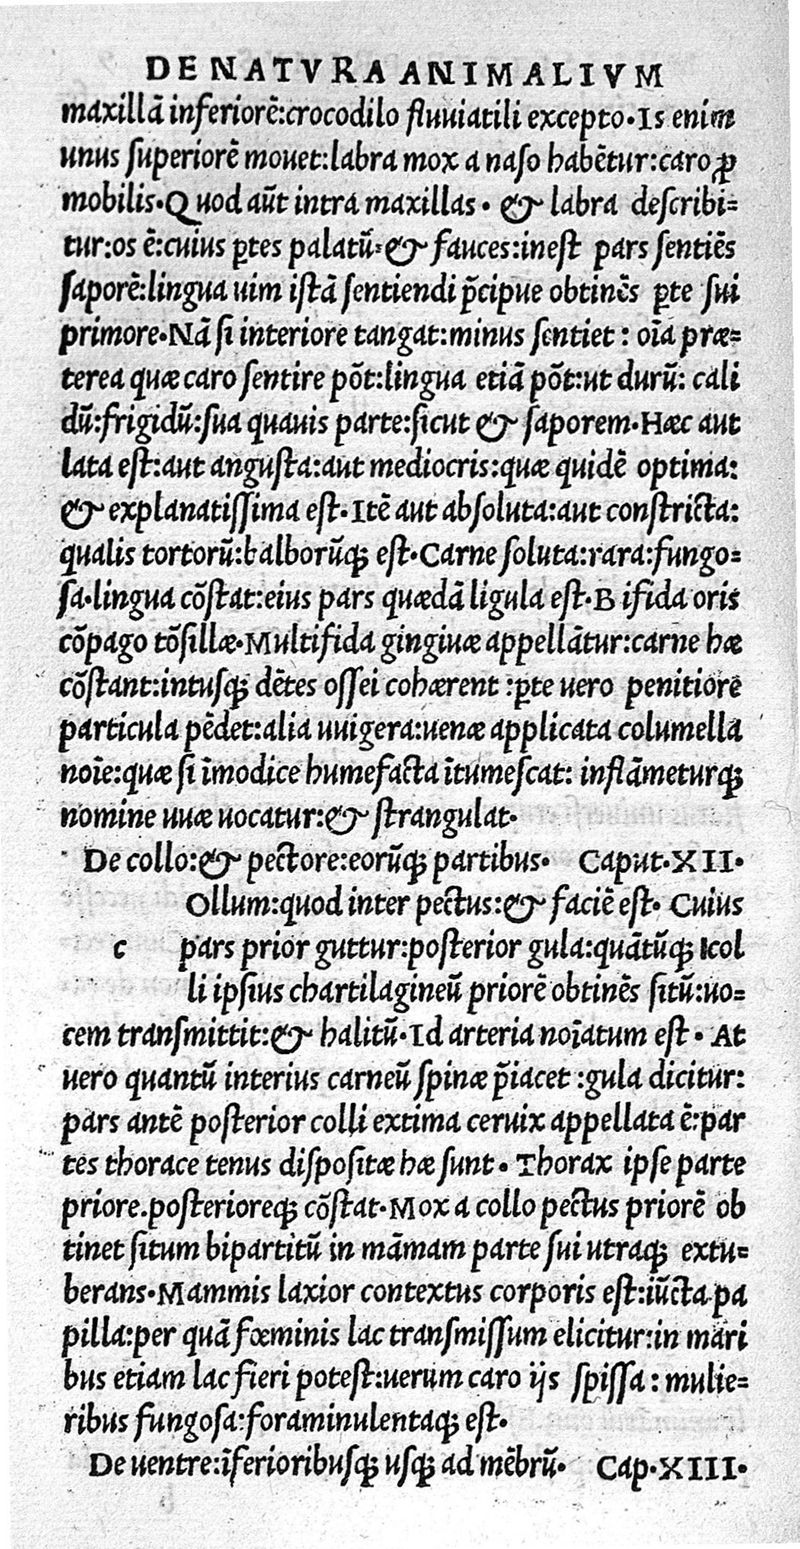 DE NATVRA ANIMALIVM
maxillā inferiorē:crocodilo fluuiatili excepto·Is enim
unus ſuperiorē mouet:labra mox a naſo habētur:caro ꝓ
mobilis·Quod aūt intra maxillas· & labra deſcribi=
tur:os ē:cuius ꝑtes palatū:& fauces:ineſt pars ſentiēs
ſaporē:lingua uim iſtā ſentiendi p̄cipue obtinēs ꝑte ſui
primore·Nā ſi interiore tangat:minus ſentiet: oīa præ=
terea quæ caro ſentire pōt:lingua etiā pōt:ut durū: cali
dū:frigidū:ſua quauis parte:ſicut & ſaporem·Hæc aut
lata eſt:aut anguſta:aut mediocris:quæ quidē optima:
& explanatiſſima eſt·Itē aut abſoluta:aut conſtricta:
qualis tortorū:balborūq; eſt·Carne ſoluta:rara:fungo=
ſa·lingua cōſtat:eius pars quædā ligula eſt·Bifida oris
cōpago tōſillæ·Multifida gingiuæ appellātur:carne hæ
cōſtant:intuſq; dētes oſſei cohærent :ꝑte uero penitiorē
particula pēdet:alia uuigera:uenæ applicata columella
noīe:quæ ſi īmodice humefacta ītumeſcat: inflāmeturq;
nomine uuæ uocatur:& ſtrangulat·
De collo:& pectore:eorūq; partibus· Caput·XII·
Ollum:quod inter pectus:& faciē eſt· Cuius
c pars prior guttur:poſterior gula:quātūq; Icol
li ipſius chartilagineū priorē obtinēs ſitū:uo=
cem tranſmittit:& halitū·Id arteria noīatum eſt· At
uero quantū interius carneū ſpinæ p̄iacet :gula dicitur:
pars antē poſterior colli extima ceruix appellata ē:par
tes thorace tenus diſpoſitæ hæ ſunt· Thorax ipſe parte
priore.poſterioreq; cōſtat·Mox a collo pectus priorē ob
tinet ſitum bipartitū in māmam parte ſui utraq; extu=
berans·Mammis laxior contextus corporis eſt:iūcta pa
pilla:per quā fœminis lac tranſmiſſum elicitur:in mari
bus etiam lac fieri poteſt:uerum caro iis ſpiſſa: mulie=
ribus fungoſa:foraminulentaq; eſt·
De uentre:īferioribuſq; uſq; ad mēbrū· Cap·XIII·